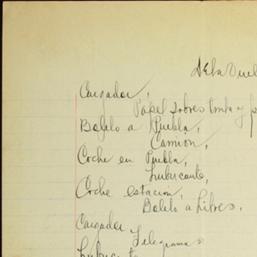 Cargador,
Papel sobres tinta y
Boleto a Puebla,
Camion,
Coche en Puebla,
Lubricante,
Coche estacion,
Boleto a Libres,
Cargador
Telegrama